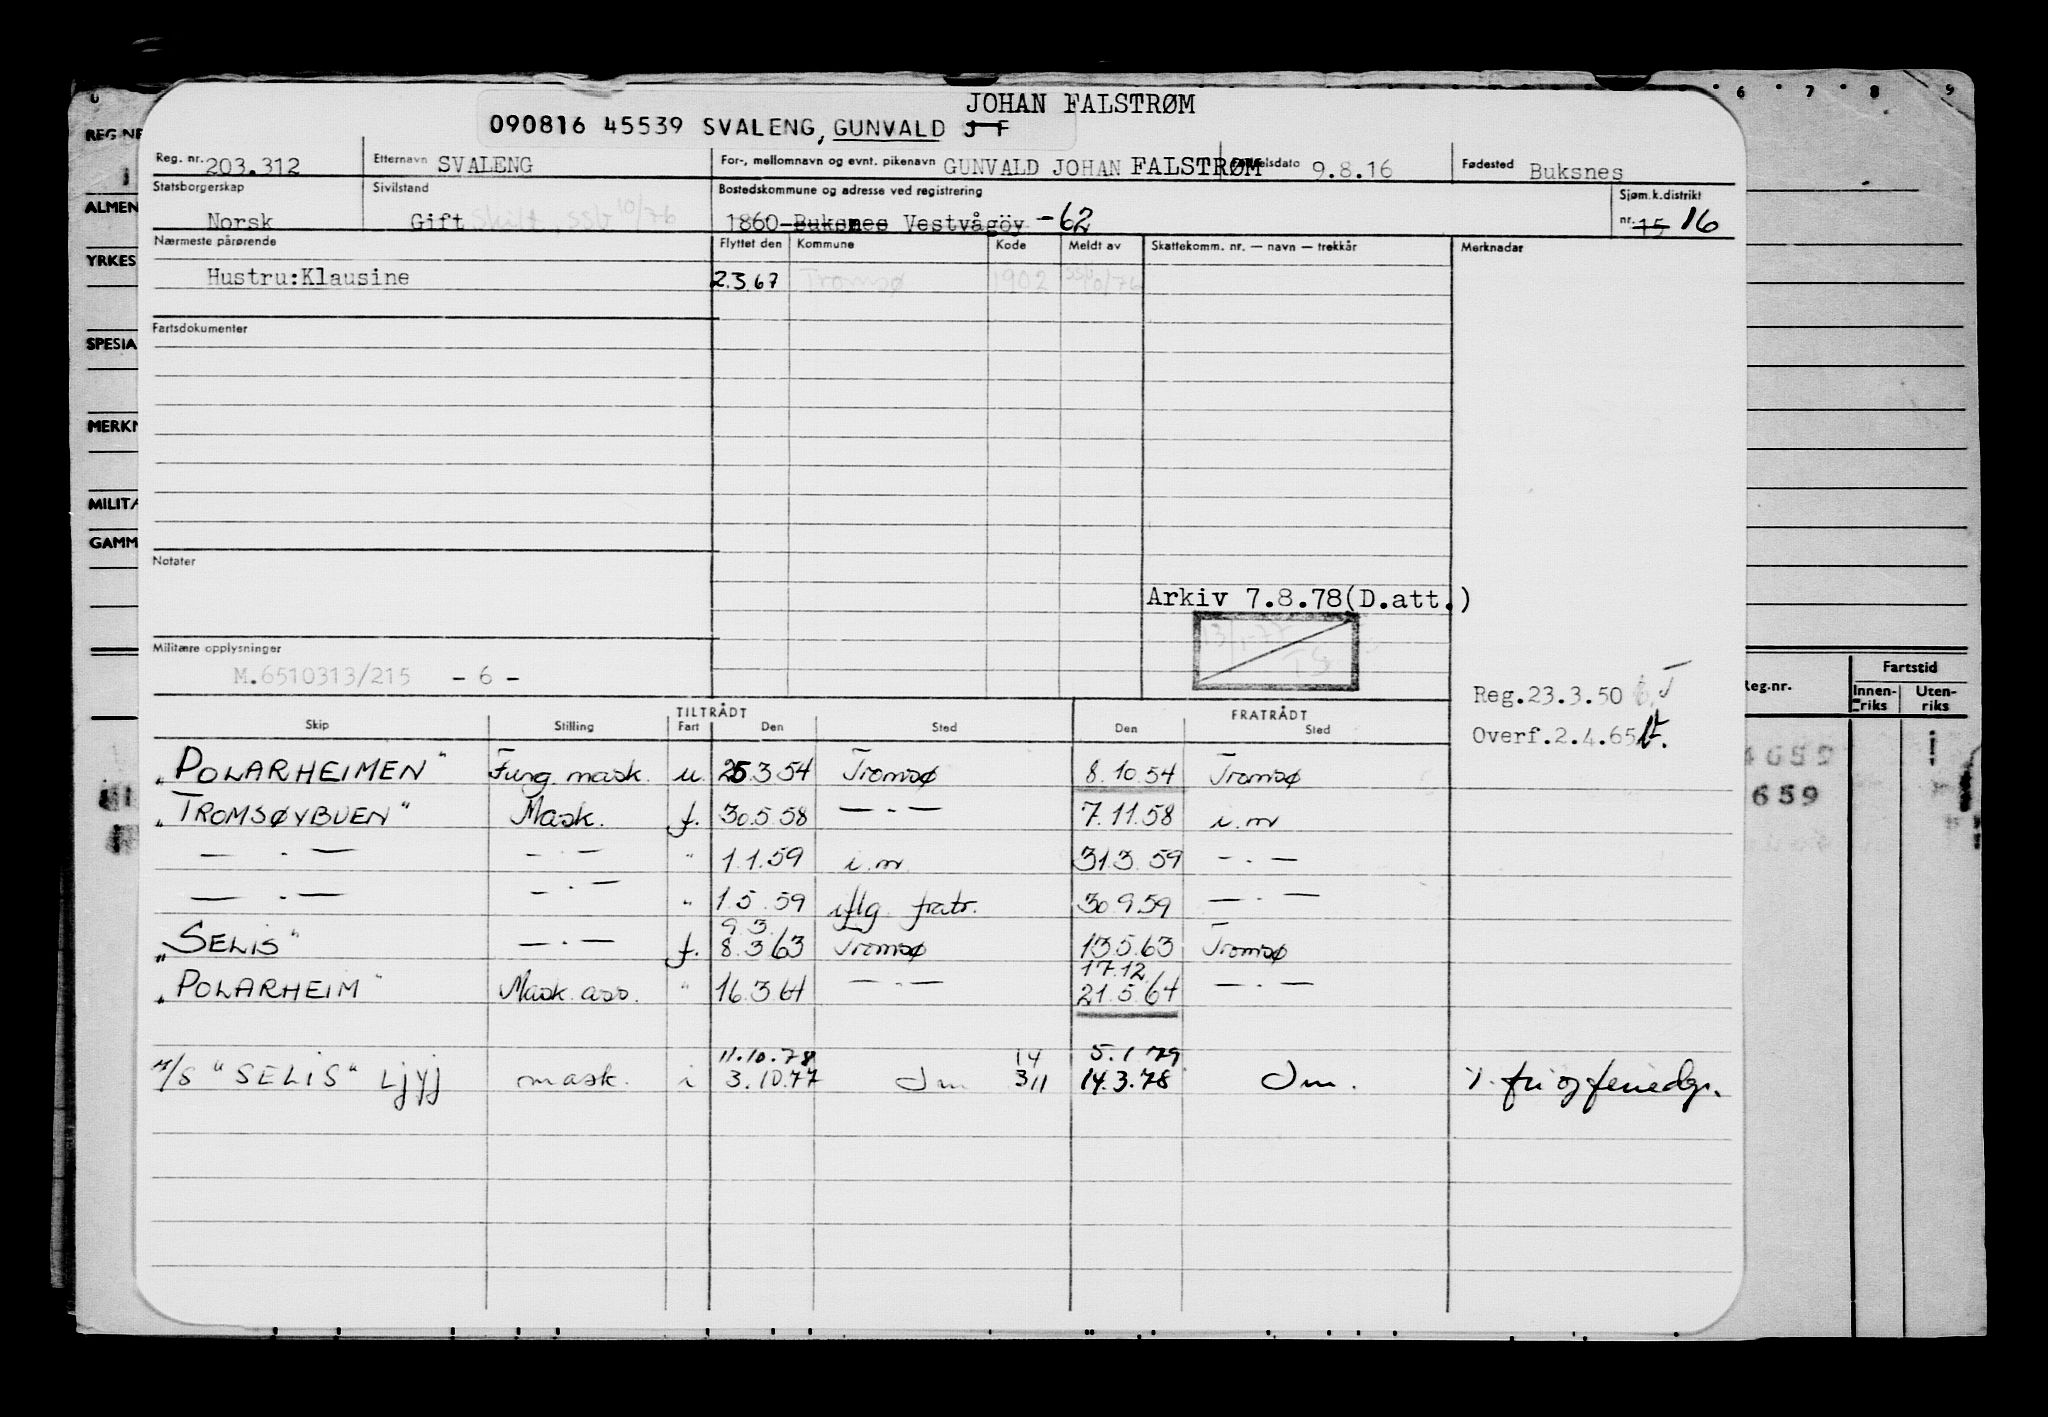 JOHAN FALSTRØM
090816 45539 SVALENG, GUNVALD J F
Reg. nr. 203.312 Etternavn SVALENG For-, mellomnavn og evnt. pikenavn GUNVALD JOHAN FALSTRØM 9.8.16 Fødested Buksnes
Statsborgerskap Norsk Sivilstand Gift Skilt ssb 10/76 Bostedskommune og adresse ved registrering 1860 Buksnes Vestvågöy -62 Sjøm.k.distrikt nr. 15 16
Nærmeste pårørende Flyttet den Kommune Kode Meldt av Skattekomm. nr. — navn — trekkår Merknader
Hustru:Klausine 2.3.67 Tromsø 1902 ssb 10/76
Fartsdokumenter
Notater
Arkiv 7.8.78(D.att.)
Militære opplysninger
M.6510313/215 - 6 -
Reg.23.3.50
Overf.2.4.65
TILTRÅDT FRATRÅDT
Skip Stilling Fart Den Sted Den Sted
"POLARHEIMEN" Fung. mask. u. 25.3.54 Tromsø 8.10.54 Tromsø
"TROMSØYBUEN" Mask. f. 30.5.58 — . — 7.11.58 i.m
— . — — . — " 1.1.59 i.m. 31.3.59 — . —
— . — — . — " 1.5.59 iflg. fratr. 30.9.59 — . —
9.3.
"SELIS" — . — f. 8.3.63 Tromsø 13.5.63 Tromsø
17.12
"POLARHEIM" Mask. ass. " 16.3.64 — . — 21.5.64 — . —
11.10.78 14 5.1.79
M/S "SELIS" LJYJ mask. i 3.10.77 Dm 311 14.3.78 Dm. fri og feriedgr.
REG NR
ALMEN
YRKES
SPESIA
MERKN
MILITÆ
GAMM
6 7 8 9
Reg.nr. Fartstid
Innen-riks Uten-riks
4659
659